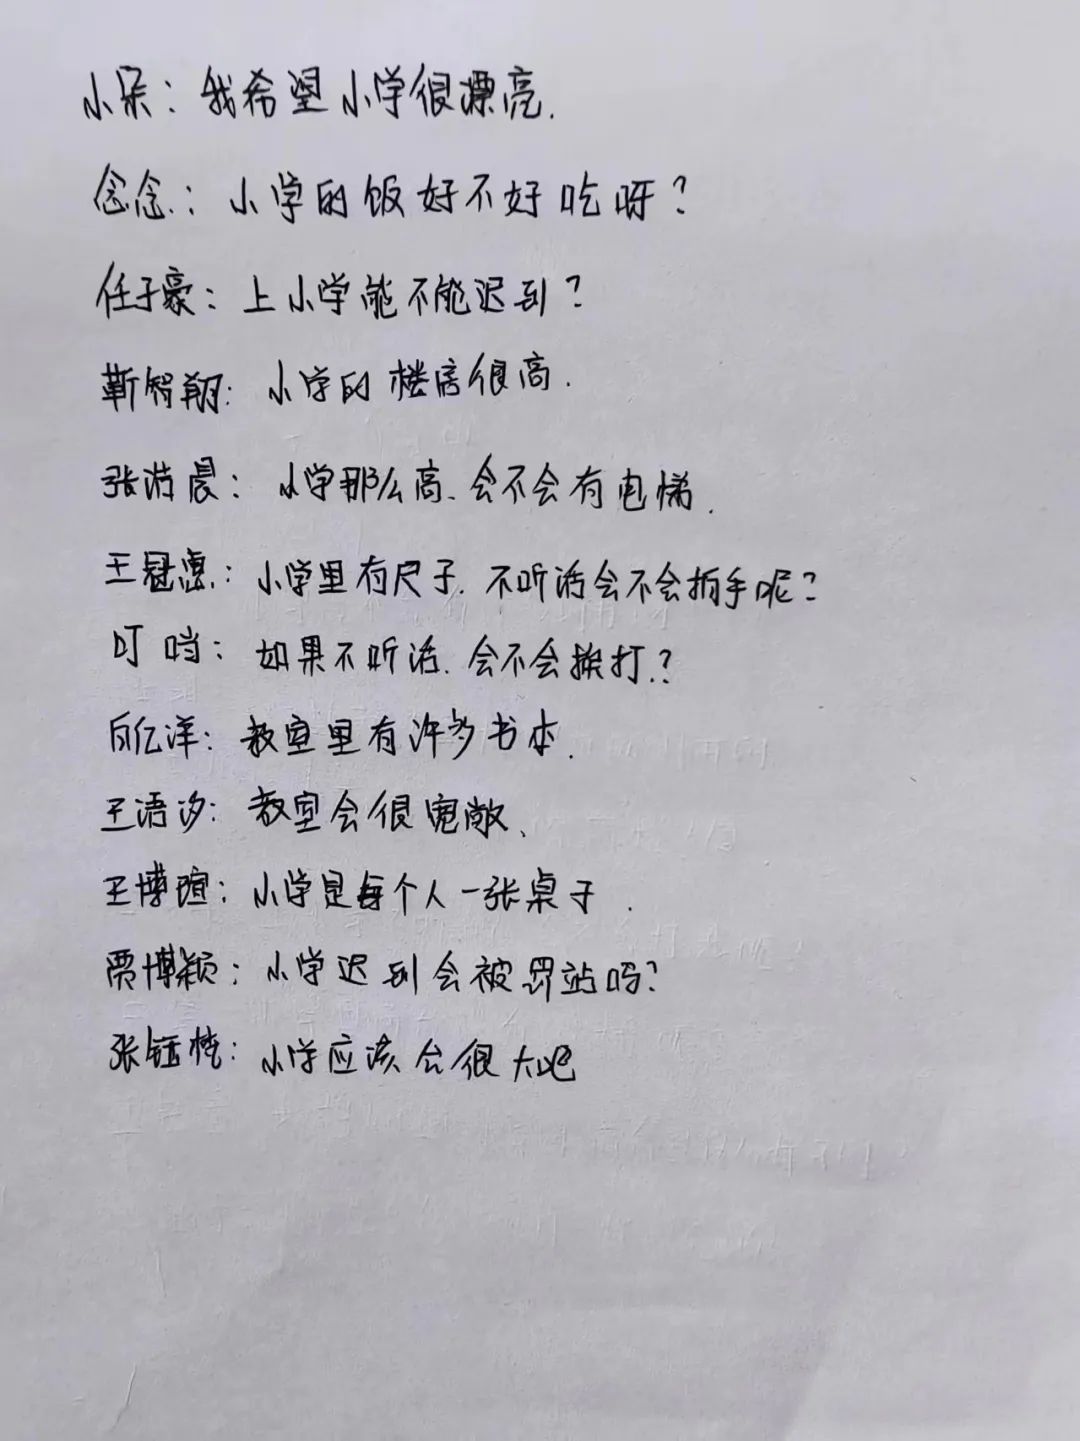 小朵：我希望小学很漂亮.
念念：小学的饭好不好吃呀？
任子豪：上小学能不能迟到？
靳智翔：小学的楼房很高.
张洧晨：小学那么高、会不会有电梯.
王冠惠：小学里有尺子.不听话会不会拍手呢？
叮当：如果不听话.会不会挨打.？
白亿洋：教室里有许多书本.
王语汐：教室会很宽敞、
王博瑄：小学是每个人一张桌子.
贾博颖：小学迟到会被罚站吗？
张钰：小学应该会很大吧